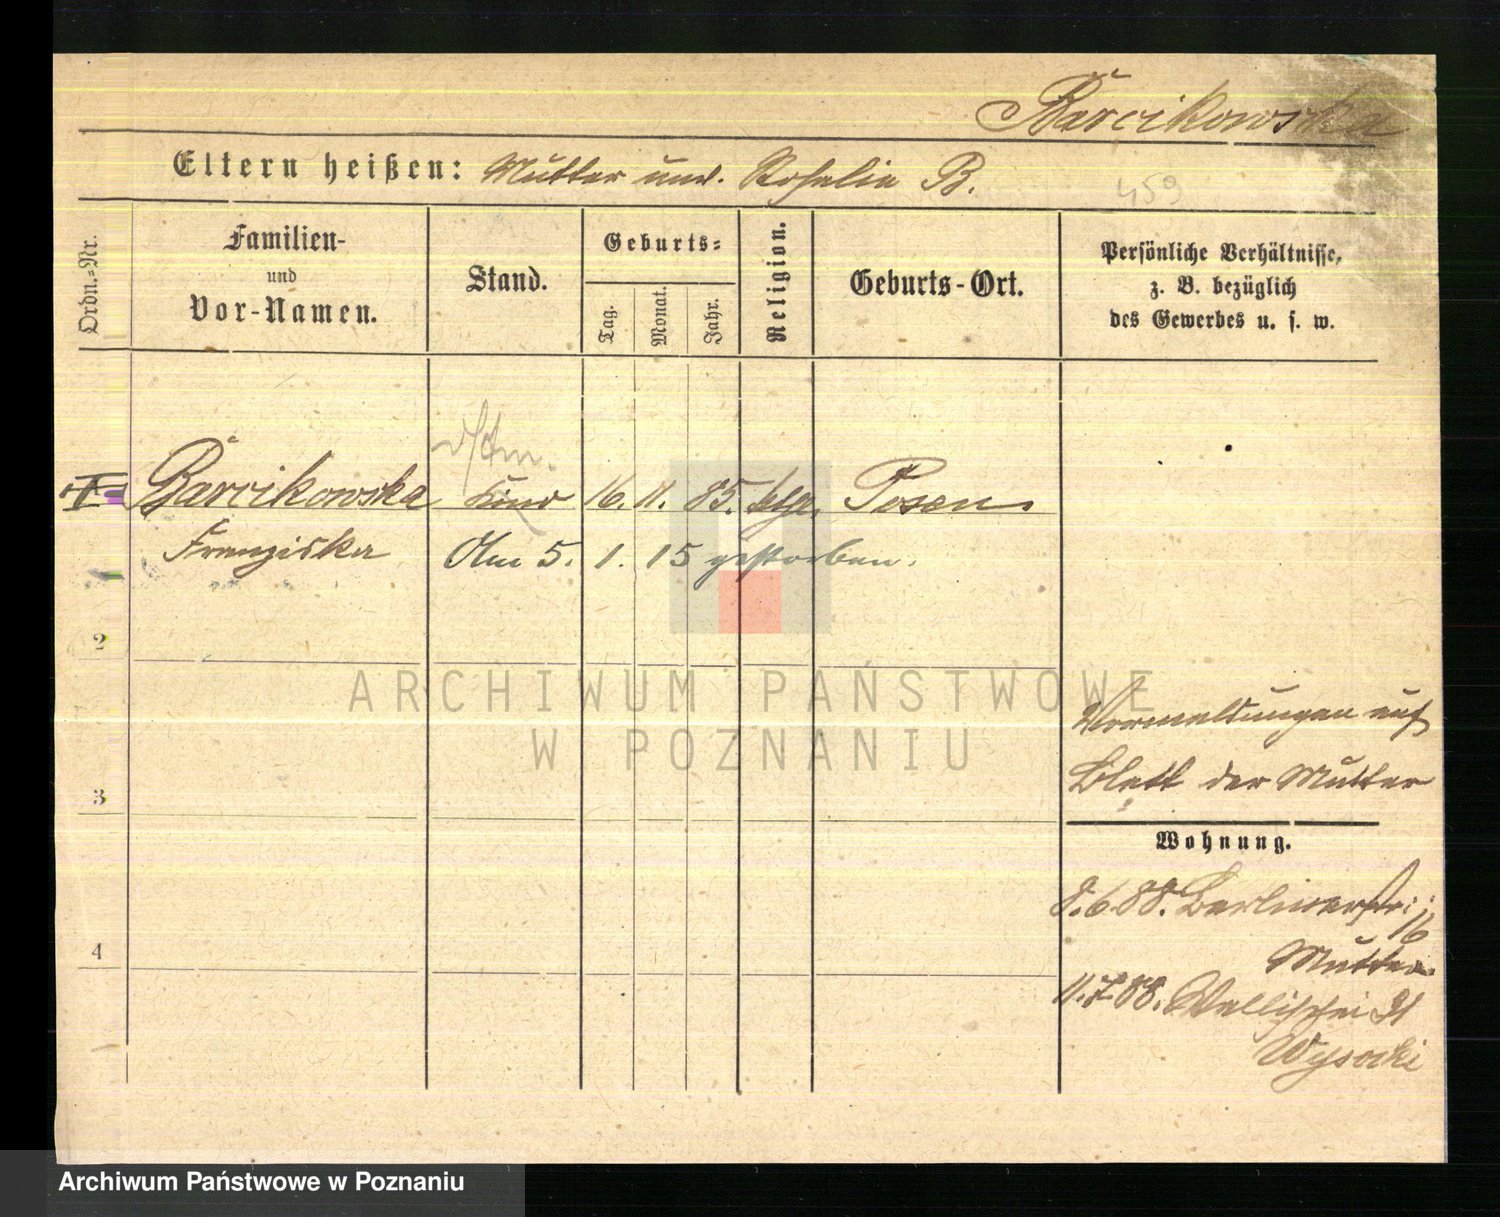 Barcikowska
Eltern heißen: Mutter unv. Rosalie B.
459
Ordn.-Nr.
Familien-
und
Vor-Namen.
Stand.
Geburts-
Tag.
Monat.
Jahr.
Religion.
Geburts-Ort.
Persönliche Verhältnisse,
z. B. bezüglich
des Gewerbes u. s. w.
Barcikowska Kind 16. 11. 85. kath. Posen
Franziska Am 5. 1. 15 gestorben.
2
ARCHIWUM PAŃSTWOWE
W POZNANIU
Vormeldungen auf
Blatt der Mutter
3
Wohnung.
8.6.88. Berlinerstr. 16
Mutter
4
11.7.88. Wallischei
Wysocki
Archiwum Państwowe w Poznaniu